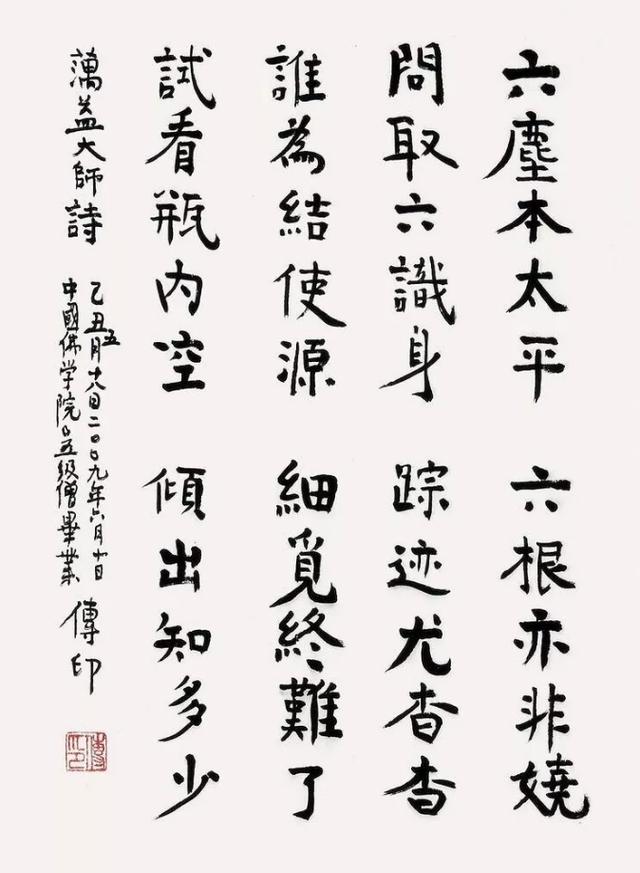 六塵本太平 六根亦非嬈
問取六識身 踪迹尤杳杳
誰為結使源 細覓終難了
試看瓶内空 傾出知多少
蕅益大師詩
己丑五月十八日二〇〇九年六月十日
中國佛学院〇五級僧畢業 傳印
傳印